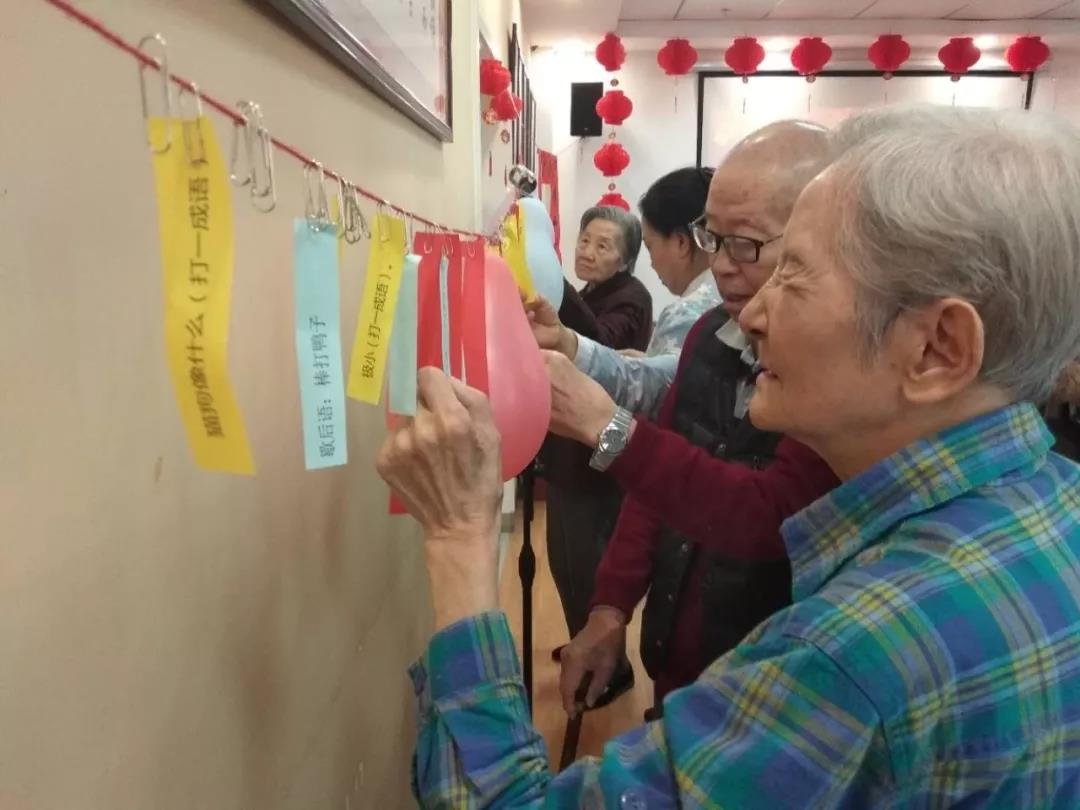 猫狗像什么（打一成语
歇后语：棒打鸭子
极小（打一成语）.